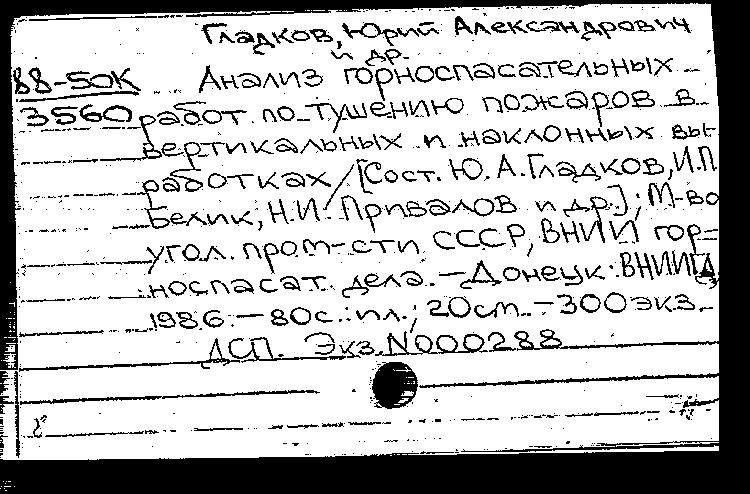 Гладков, Юрий Александрович
и др.
88-50К Анализ горноспасательных
3560 работ по тушению пожаров в
вертикальных и наклонных вы-
работках / [Сост. Ю. А. Гладков, И.П.
Белик, Н.И. Привалов и др.]; М-во
угол. пром-сти СССР, ВНИИ гор-
носпасат. дела. — Донецк: ВНИИГД,
1986. — 80с.: ил.; 20см. — 300экз. —
ДСП. Экз. N000288